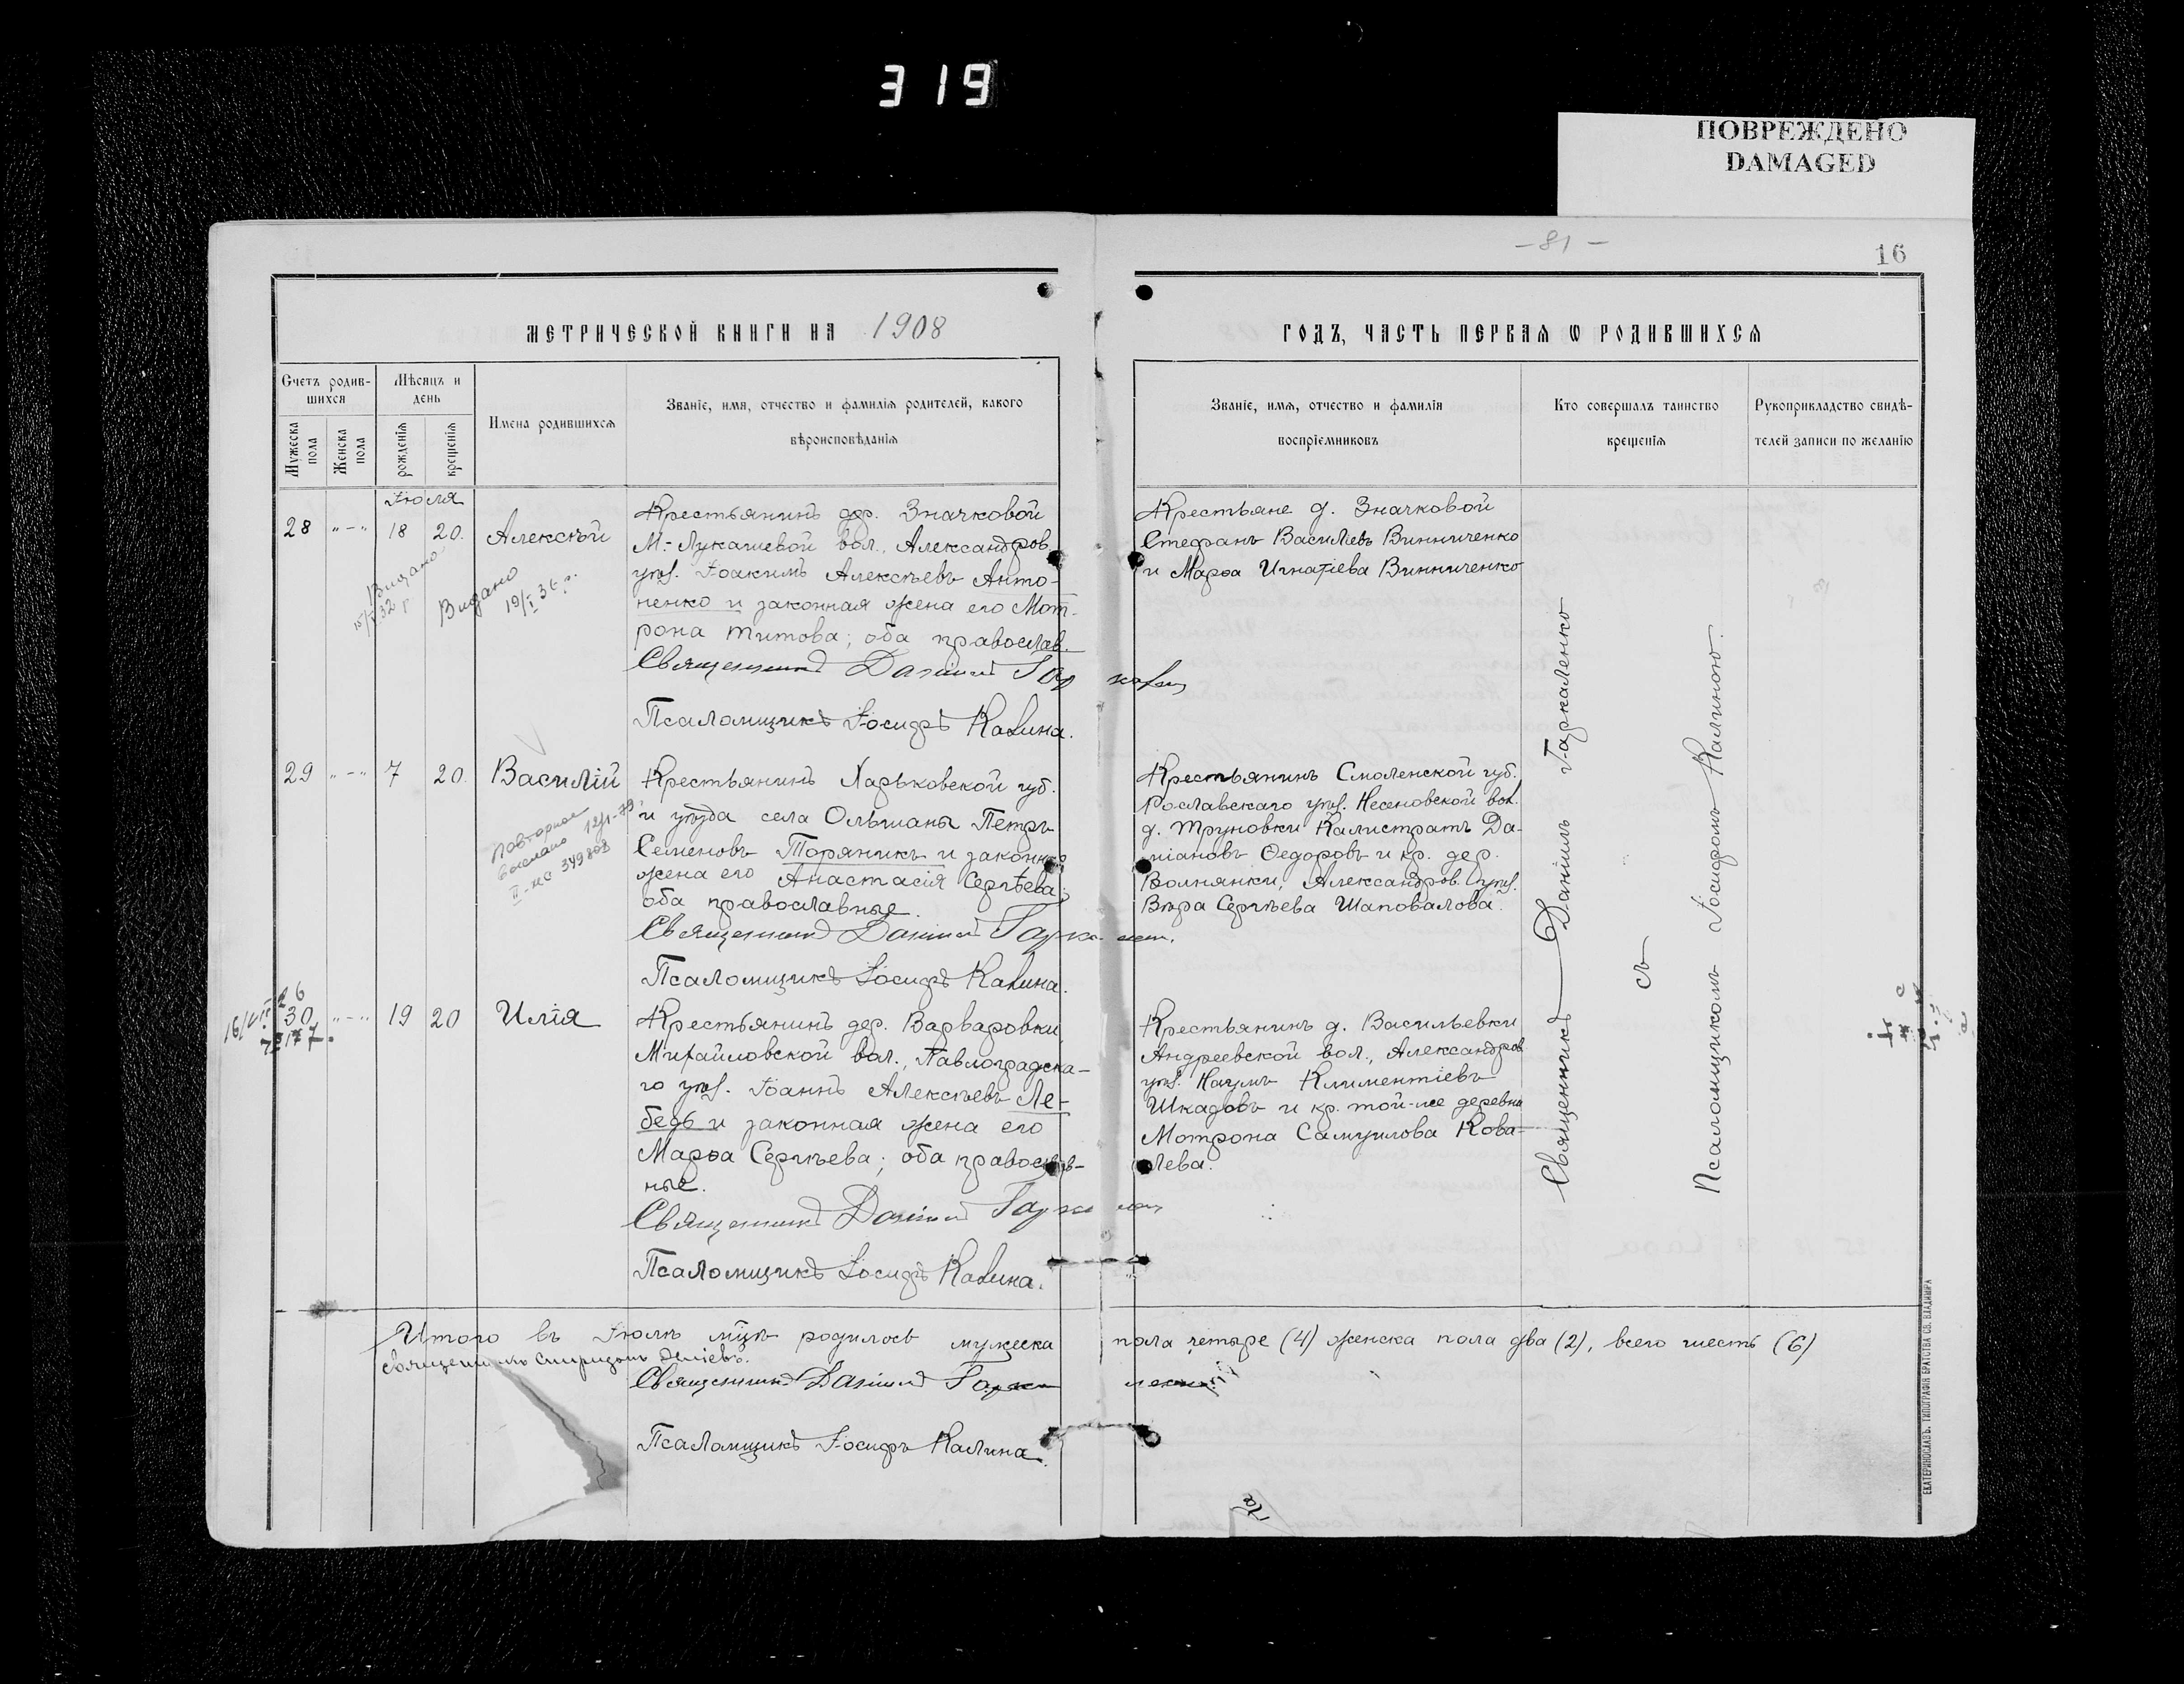 319
ПОВРЕЖДЕНО
DAMAGED
-81-
16
МЕТРИЧЕСКОЙ КНИГИ НА 1908
ГОДЪ, ЧАСТЬ ПЕРВАЯ Ѡ РОДИВШИХСЯ
Счетъ родив-
шихся
Мужеска пола
Женска пола
Мѣсяцъ и
день
рожденія
крещенія
Имена родившихся
Званіе, имя, отчество и фамилія родителей, какого
вѣроисповѣданія
Званіе, имя, отчество и фамилія
воспріемниковъ
Кто совершалъ таинство
крещенія
Рукоприкладство свидѣ-
телей записи по желанію
Іюля
28 "-" 18 20. Алексѣй
Видано
Видано
19/I 36 г.
Крестьянинъ дер. Значковой
М.-Лукашевой вол., Александров.
уѣз. Іоакимъ Алексѣевъ Анто-
ненко и законная жена его Мот-
рона Титова; оба православ.
Священникъ Даніилъ
Псаломщикъ Іосифъ Калина.
Крестьяне д. Значковой
Стефанъ Василіевъ Винниченко
и Марѳа Игнатіева Винниченко
29 "-" 7 20. Василій
Повторное
выслано 12/I-79
II-ЖС 349808
Крестьянинъ Харьковской губ.
и уѣзда села Ольшаны Петръ
Семеновъ Торяникъ и законная
жена его Анастасія Сергѣева;
оба православные.
Священникъ Даніилъ
Псаломщикъ Іосифъ Калина.
Крестьянинъ Смоленской губ.
Рославскаго уѣз. Несоновской вол.
д. Труновки Калистратъ Да-
міановъ Ѳедоровъ и кр. дер.
Волнянки, Александров. уѣз.
Вѣра Сергѣева Шаповалова.
30 "-" 19 20 Илія
Крестьянинъ дер. Варваровки,
Михайловской вол., Павлоградска-
го уѣз. Іоаннъ Алексѣевъ Ле-
бедь и законная жена его
Марѳа Сергѣева; оба православ-
ные.
Священникъ Даніилъ
Псаломщикъ Іосифъ Калина.
Крестьянинъ д. Васильевки
Андреевской вол., Александров.
уѣз. Наумъ Климентіевъ
Шкадовъ и кр. той-же деревни
Мотрона Самуилова Кова-
лева.
Священникъ Даніилъ Гаркаленко
съ
Псаломщикомъ Іосифомъ Калиною.
Итого въ Іюлѣ мѣцѣ родилось мужеска пола четыре (4) женска пола два (2), всего шесть (6)
Священникъ Даніилъ
Псаломщикъ Іосифъ Калина.
ЕКАТЕРИНОСЛАВЪ. ТИПОГРАФІЯ БРАТСТВА СВ. ВЛАДИМІРА